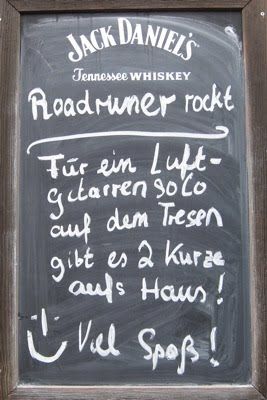 JACK DANIEL'S
Tennessee WHISKEY
Roadruner rockt
Für ein Luft-
gitarrensolo
auf dem Tresen
gibt es 2 Kurze
aufs Haus!
Viel Spaß!